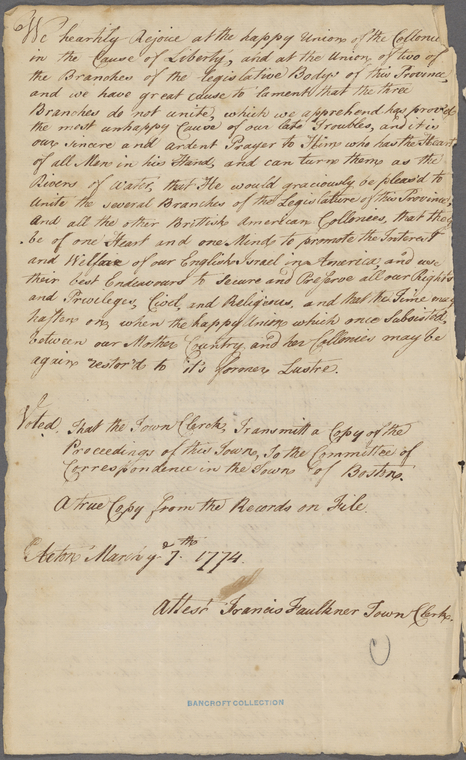 We heartily Rejoice at the happy Union of the Collonies
in the Cause of Liberty, and at the Union of two of
the Branches of the Legislative Body of this Province,
and we have great cause to lament that the three
Branches do not unite, which we apprehend has prov'd
the most unhappy Cause of our late Troubles, and it is
our Sincere and Ardent Prayer to Him who has the Hearts
of all Men in his Hand, and can turn them as the
Rivers of Water, that He would graciously be pleas'd to
Unite the several Branches of the Legislature of this Province,
And all the other British American Collonies, that they
be of one Heart and one Mind to promote the Interest
and Welfare of our English Israel in America, and use
their best Endeavours to Secure and Preserve all our Rights
and Priveleges, Civel and Religious, and that the Time may
hasten on, when the happy Union which once Subsisted,
between our Mother Country and her Collonies may be
again restor'd to it's former Lustre.
Voted, That the Town Clerk, Transmitt a Copy of the
Proceedings of this Town, To the Committee of
Correspondence in the Town of Boston.
A true Copy from the Records on File.
Acton March ye 7th 1774.
Attest Francis Faulkner Town Clerk.
BANCROFT COLLECTION